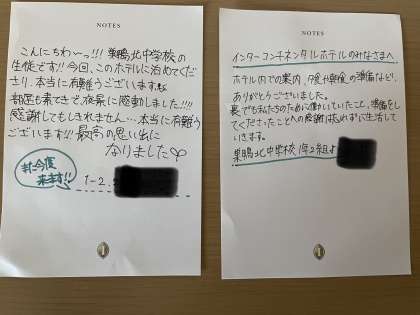 NOTES
こんにちわ〜っ!!! 巣鴨北中学校の
生徒です!! 今回、このホテルに泊めてくださ
り、本当に有難うございますm
部屋も素てきで、夜景に感動しました!!!!
感謝してもしきれません…本当に有難う
ございます!!! 最高の思い出に
なりました♡
また今度
来ます!!
1-2.
NOTES
インターコンチネンタルホテルのみなさまへ
ホテル内での案内、夕食や朝食の準備など、
ありがとうございました。
裏でも私たちのために働いていたこと、準備をし
てくださったことへの感謝は忘れずに生活して
いきます。
巣鴨北中学校 1年2組より